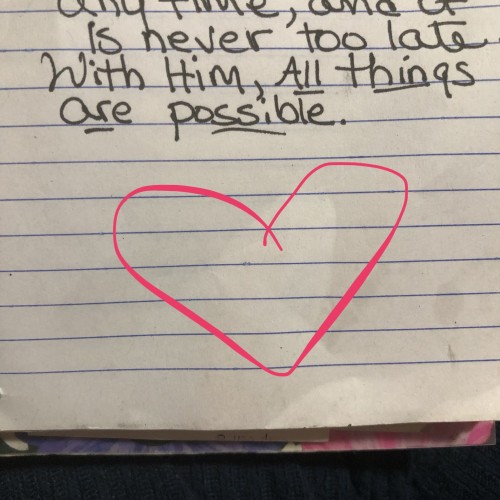 any time, and it
is never too late
With Him, All things
are possible.